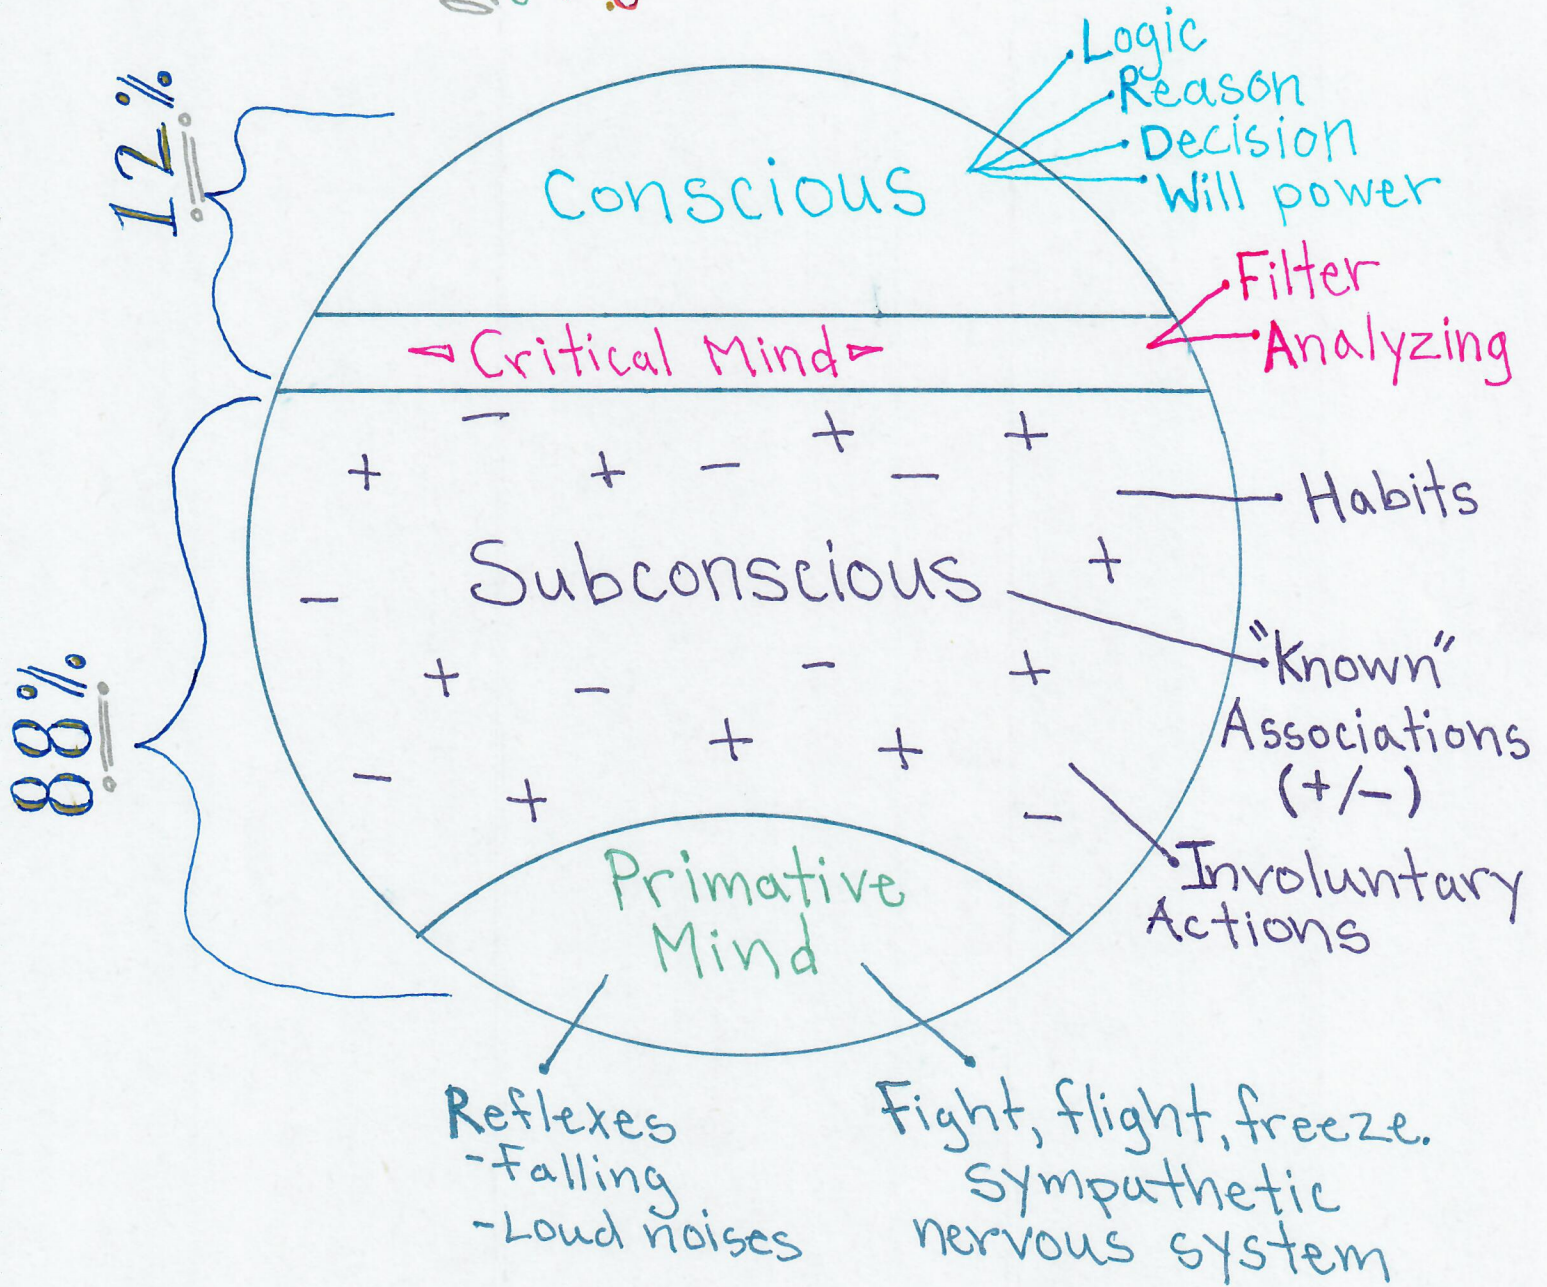 12%
Conscious
Logic
Reason
Decision
Will power
Critical Mind
Filter
Analyzing
88%
+ - + - + - +
Habits
Subconscious
- +
"Known"
Associations
(+/-)
+ - - +
+ +
- + -
Involuntary
Actions
Primative
Mind
Reflexes
-Falling
-Loud noises
Fight, flight, freeze.
sympathetic
nervous system